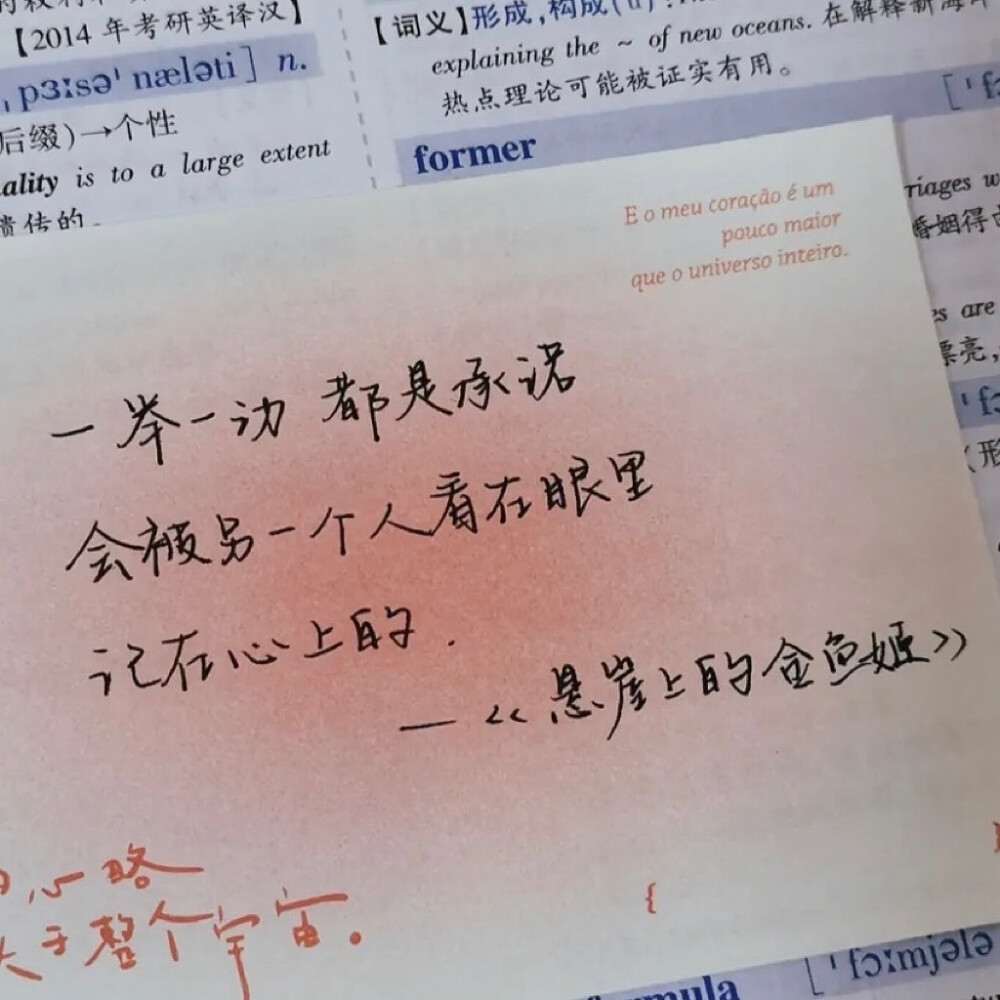 【2014年考研英译汉】
ˌpɜːsəˈnæləti] n.
后缀)→个性
ality is to a large extent
遗传的
【词义】形成,构成
explaining the ~ of new oceans. 在解释新海
热点理论可能被证实有用。
former
riages w
婚姻得
es are
漂亮,
E o meu coração é um
pouco maior
que o universo inteiro.
一举一动 都是承诺
会被另一个人看在眼里
记在心上的.
—《悬崖上的金鱼姬》
心略
大于整个宇宙。
{
[ˈfɔːmjələ
rmula